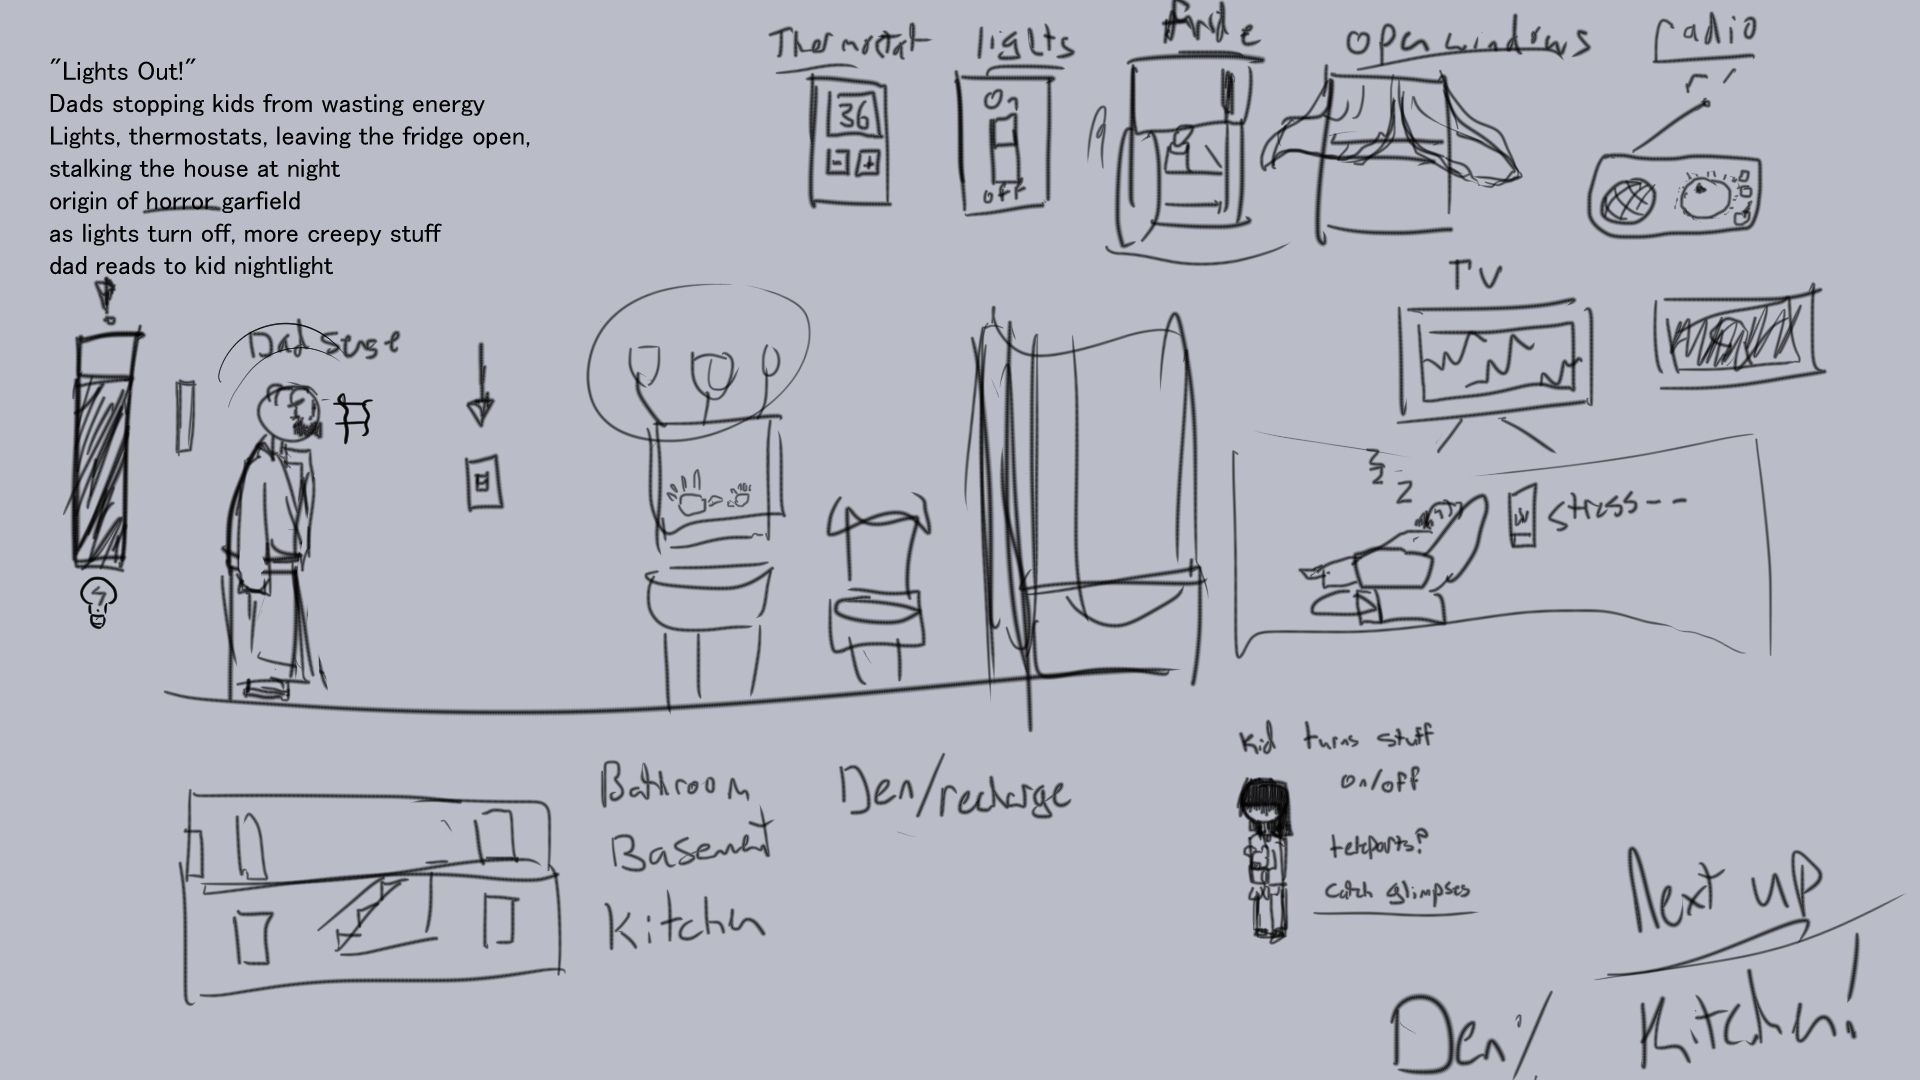 "Lights Out!"
Dads stopping kids from wasting energy
Lights, thermostats, leaving the fridge open,
stalking the house at night
origin of horror garfield
as lights turn off, more creepy stuff
dad reads to kid nightlight
Thermostat
lights
fridge
open windows
radio
36
- +
On
off
TV
Dad sense
z
z
z
stress--
Bathroom
Basement
Kitchen
Den/recharge
Kid turns stuff
on/off
teleports?
catch glimpses
Next up
Den/
Kitchen!